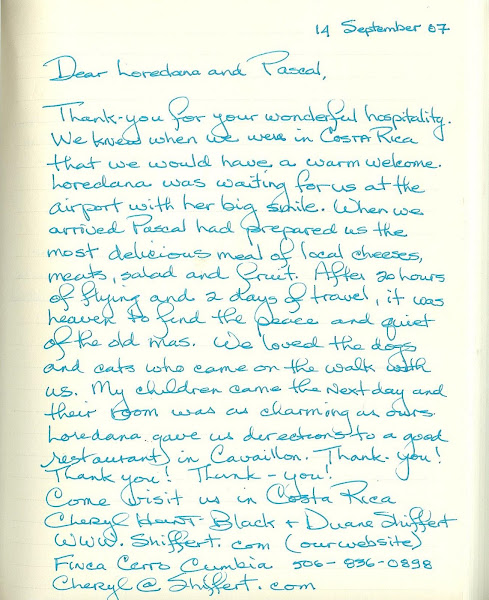 14 September 07
Dear Loredana and Pascal,
Thank-you for your wonderful hospitality.
We knew when we were in Costa Rica
that we would have a warm welcome.
Loredana was waiting for us at the
airport with her big smile. When we
arrived Pascal had prepared us the
most delicious meal of local cheeses,
meats, salad and fruit. After 20 hours
of flying and 2 days of travel, it was
heaven to find the peace and quiet
of the old mas. We loved the dogs
and cats who came on the walk with
us. My children came the next day and
their room was as charming as ours.
Loredana gave us directions to a good
restaurant in Cavaillon. Thank-you!
Thank you! Thank-you!
Come visit us in Costa Rica
Cheryl Hewt-Black + Duane Shiffert
WWW.Shiffert.com (our website)
Finca Cerro Cumbia 506-836-0898
Cheryl@Shiffert.com